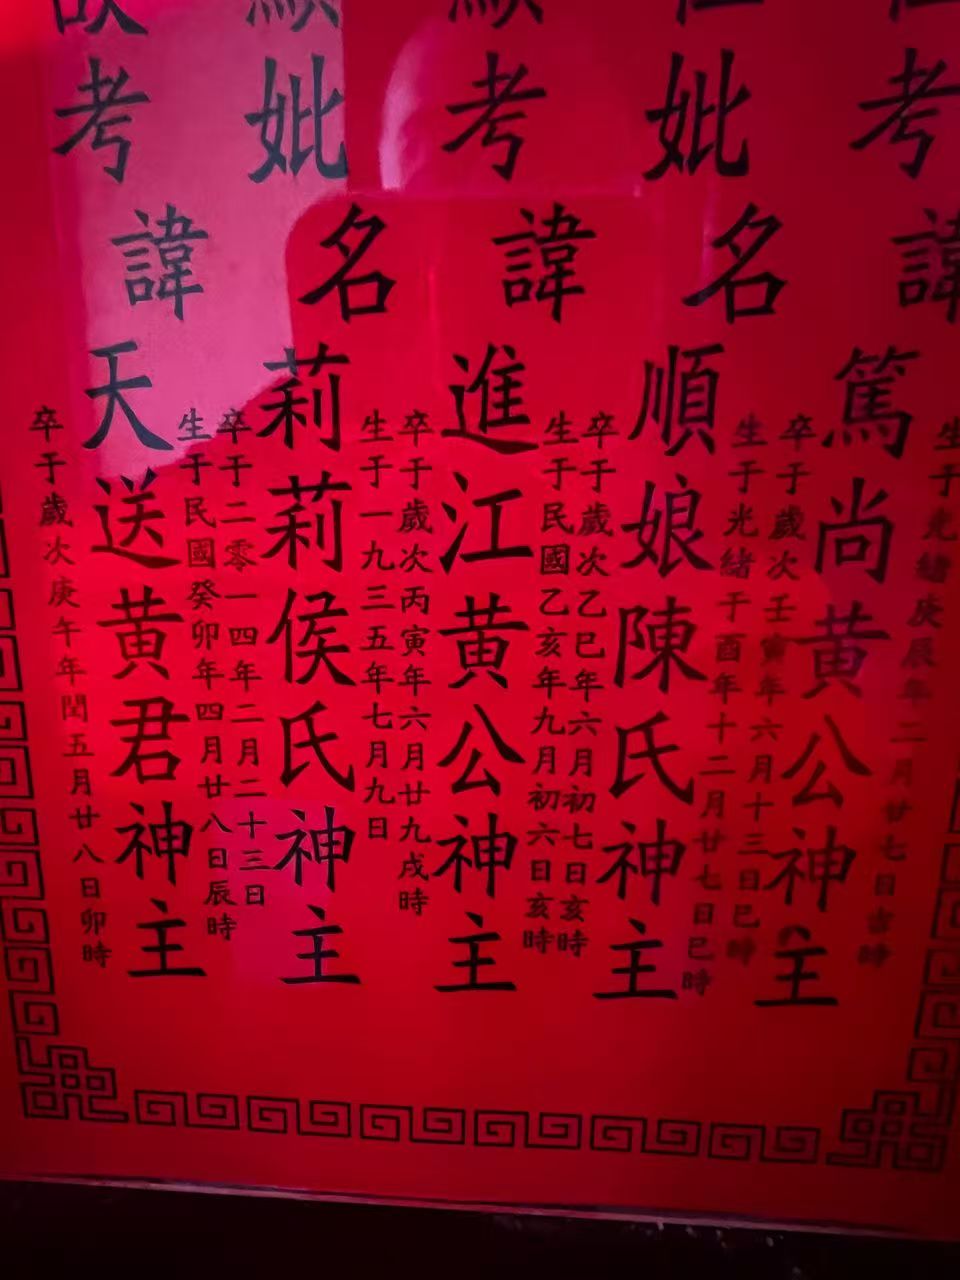 考諱篤尚黄公神主
生于光緒庚辰年二月廿七日吉時
卒于歲次壬寅年六月十三日巳時
妣名順娘陳氏神主
生于光緒于酉年十二月廿七日巳時
卒于歲次乙巳年六月初七日亥時
顯考諱進江黄公神主
生于民國乙亥年九月初六日亥時
卒于歲次丙寅年六月廿九戌時
顯妣名莉莉侯氏神主
生于一九三五年七月九日
卒于二零一四年二月二十三日
故考諱天送黄君神主
生于民國癸卯年四月廿八日辰時
卒于歲次庚午年閏五月廿八日卯時